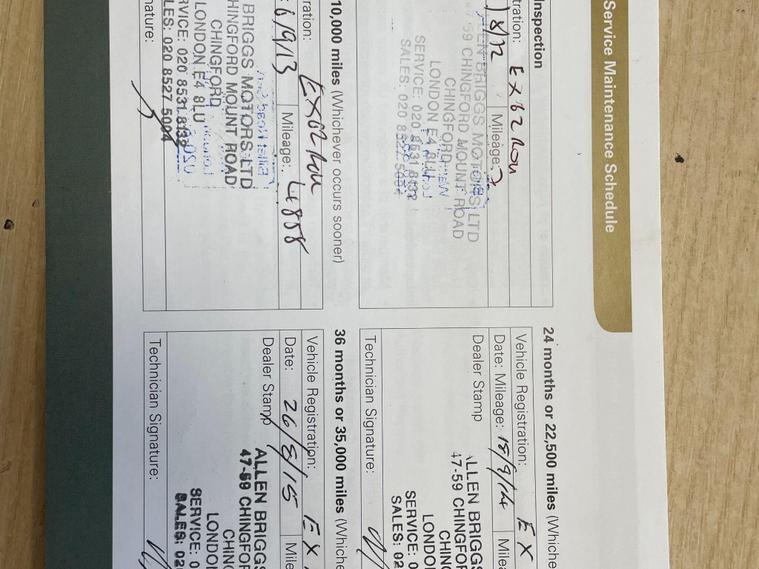 Service Maintenance Schedule
Inspection
tration: EX62 Rou
18/12 Mileage: 7
ALLEN BRIGGS MOTORS LTD
47-59 CHINGFORD MOUNT ROAD
CHINGFORD
LONDON E4 8LU
SERVICE: 020 8531 8132
SALES: 020 8527 5004
10,000 miles (Whichever occurs sooner)
tration: EX62 Rou
6/9/13 Mileage: 4858
BRIGGS MOTORS LTD
HINGFORD MOUNT ROAD
CHINGFORD
LONDON E4 8LU
RVICE: 020 8531 8132
LES: 020 8527 5004
nature:
24 months or 22,500 miles (Whiche
Vehicle Registration: EX
Date: Mileage: 15/9/14 Milea
Dealer Stamp
ALLEN BRIGGS
47-59 CHINGFOR
CHING
LONDON
SERVICE: 0
SALES: 02
Technician Signature:
36 months or 35,000 miles (Whiche
Vehicle Registration: EX
Date: 26/8/15 Mile
Dealer Stamp
ALLEN BRIGGS
47-59 CHINGFOR
CHING
LONDO
SERVICE: 0
SALES: 02
Technician Signature: